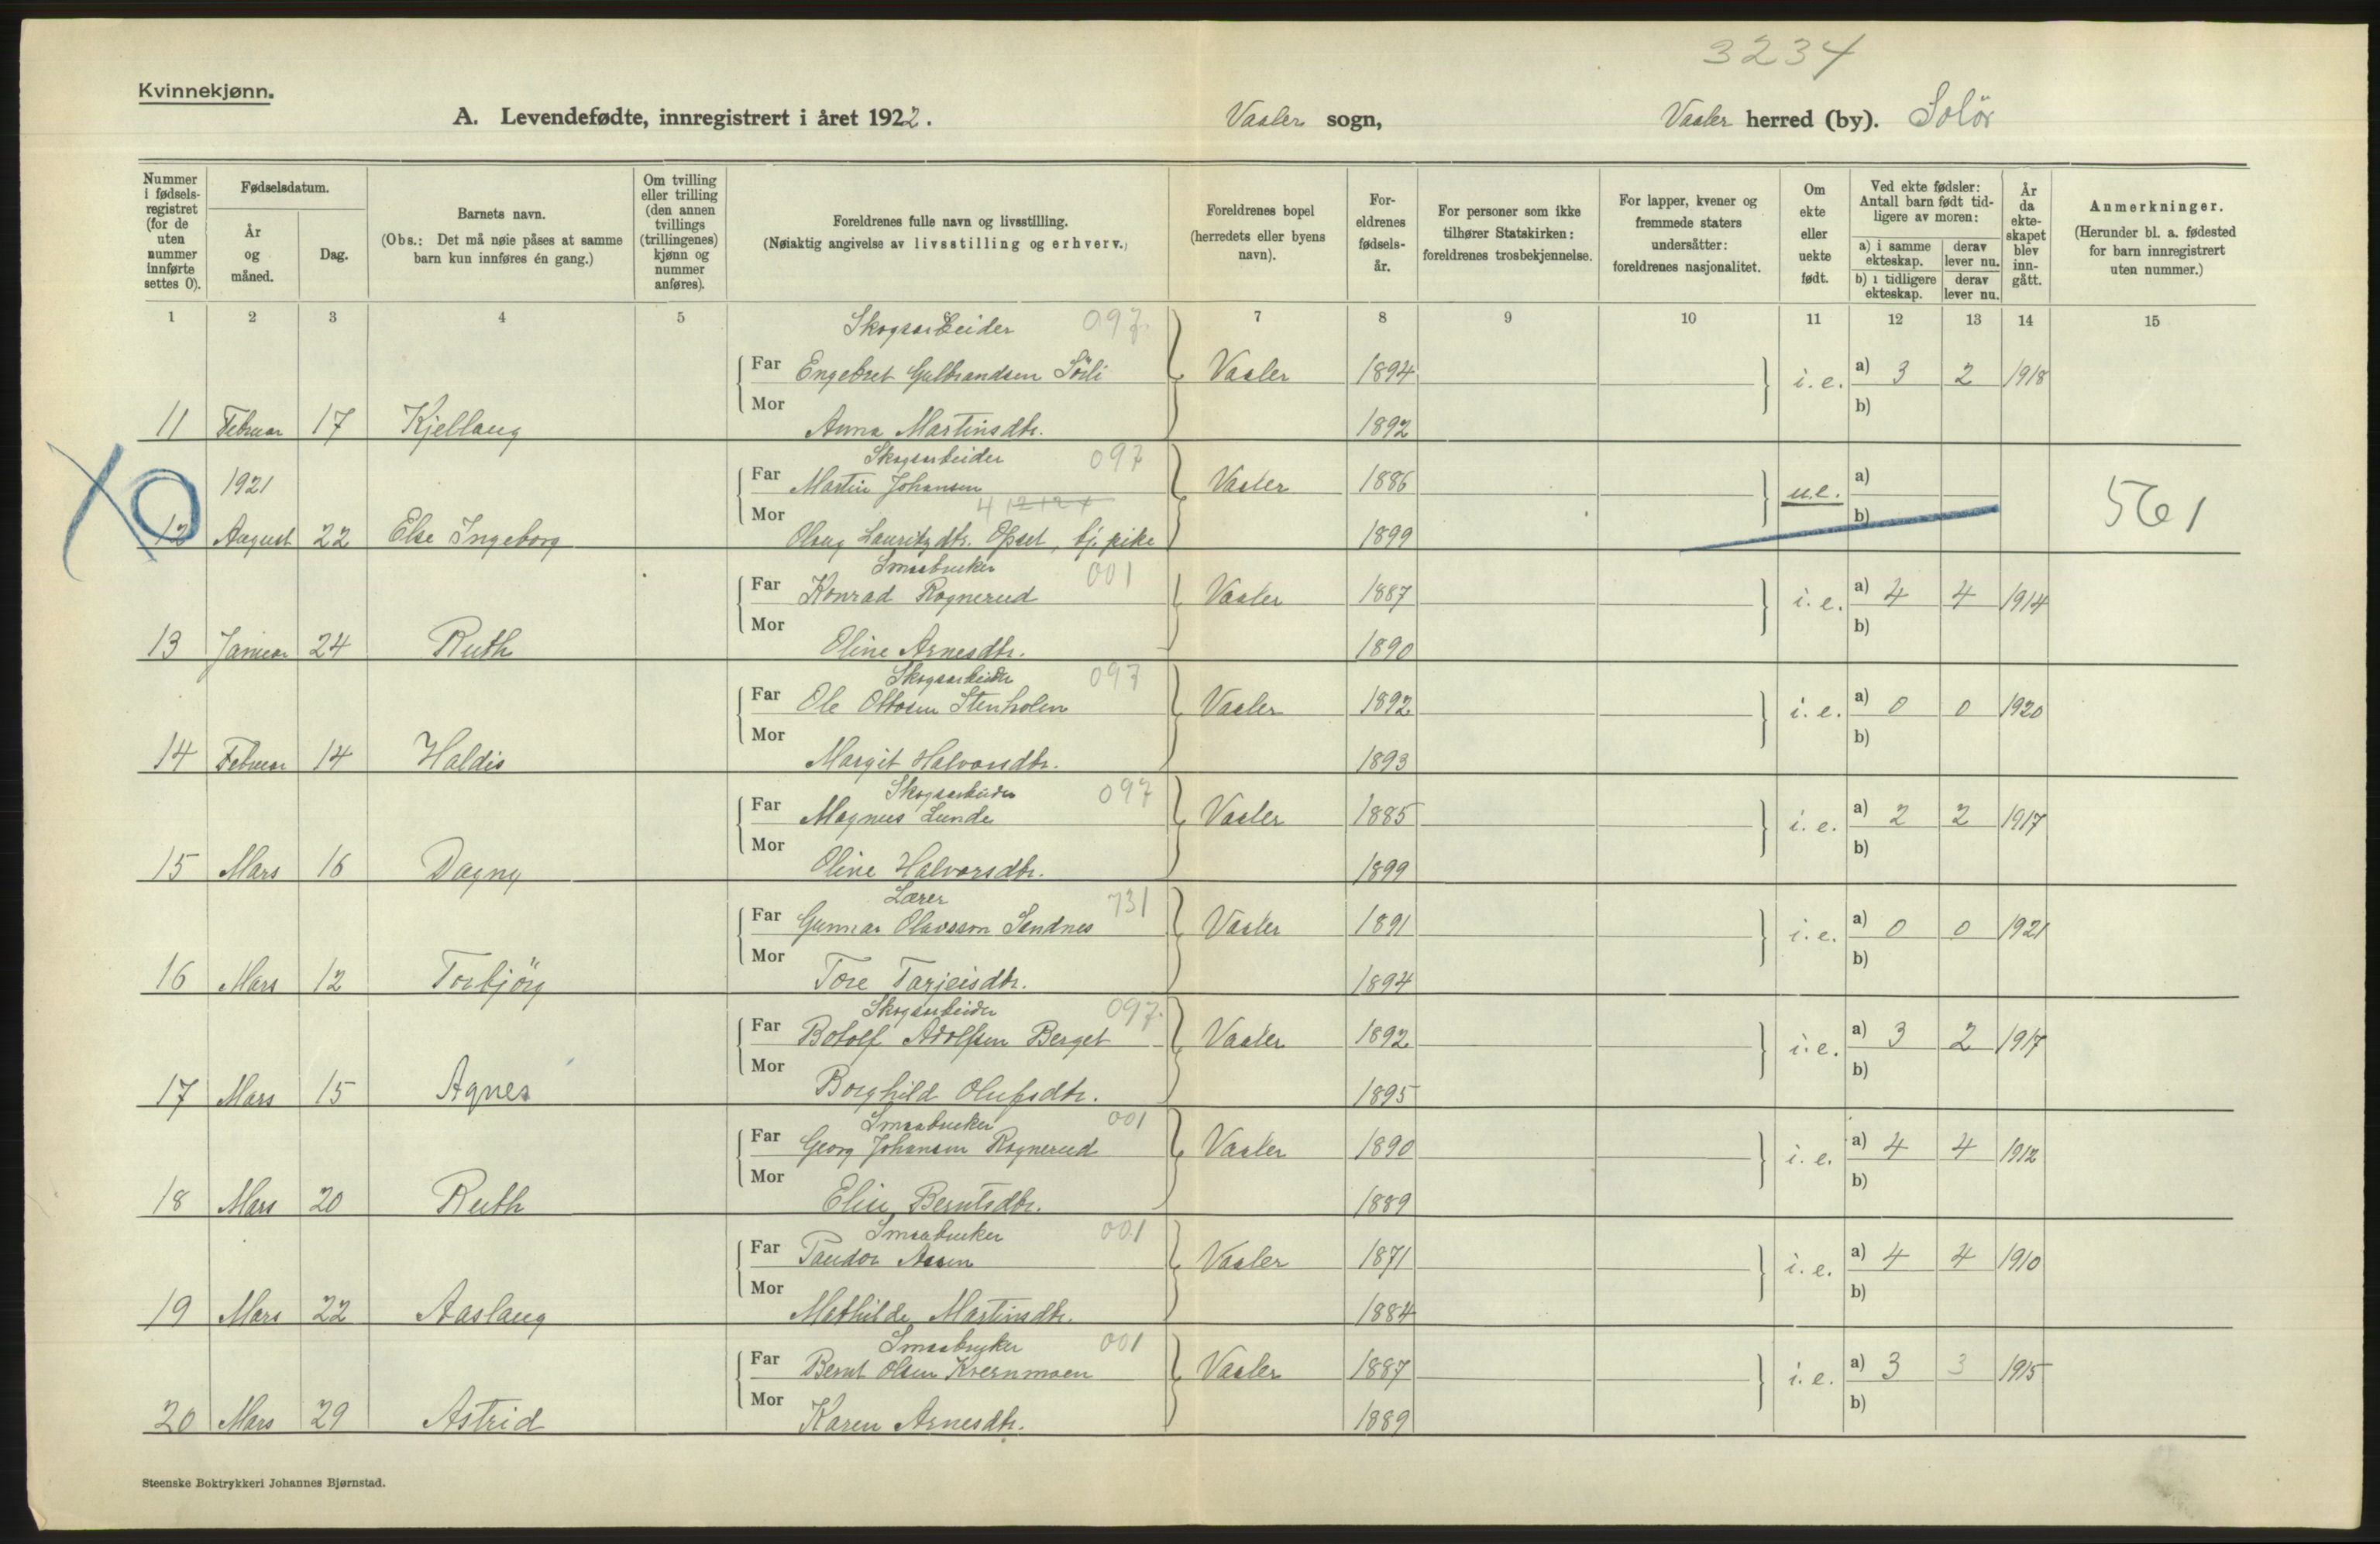 3234
Kvinnekjønn.
A. Levendefødte, innregistrert i året 1922. Vaaler sogn, Vaaler herred (by). Solör
Nummer i fødselsregistret (for de uten nummer innførte settes 0).
Fødselsdatum.
År og måned.
Dag.
Barnets navn.
(Obs.: Det må nøie påses at samme barn kun innføres én gang.)
Om tvilling eller trilling (den annen tvillings (trillingenes) kjønn og nummer anføres).
Foreldrenes fulle navn og livsstilling.
(Nøiaktig angivelse av livsstilling og erhverv.)
Foreldrenes bopel (herredets eller byens navn).
Foreldrenes fødselsår.
For personer som ikke tilhører Statskirken: foreldrenes trosbekjennelse.
For lapper, kvener og fremmede staters undersåtter: foreldrenes nasjonalitet.
Om ekte eller uekte født.
Ved ekte fødsler: Antall barn født tidligere av moren:
a) i samme ekteskap. derav lever nu.
b) i tidligere ekteskap. derav lever nu.
År da ekteskapet blev inngått.
Anmerkninger.
(Herunder bl. a. fødested for barn innregistrert uten nummer.)
1 2 3 4 5 7 8 9 10 11 12 13 14 15
Skogsarbeider 097
Far Engebret Gulbrandsen Sörli Vaaler 1894 i. e. a) 3 2 1918
Mor b)
11 Februar 17 Kjellaug Anna Martinsdtr. 1892
Skogsarbeider 097
1921 Far Martin Johansen Vaaler 1886 u.e. a)
4 1212 1
Mor b) 561
12 August 22 Else Ingeborg Olaug Lauritzdtr. Opset, tj. pike 1899
Smaabruker 001
Far Konrad Rognerud Vaaler 1887 i. e. a) 4 4 1914
Mor b)
13 Januar 24 Ruth Oline Arnesdtr. 1890
Skogsarbeider 097
Far Ole Ottosen Stenholen Vaaler 1892 i. e. a) 0 0 1920
Mor b)
14 Februar 14 Haldis Margit Halvorsdtr. 1893
Skogsarbeider 097
Far Magnus Lunde Vaaler 1885 i. e. a) 2 2 1917
Mor b)
15 Mars 16 Dagny Oline Halvorsdtr. 1899
Lærer 731
Far Gunnar Olavsson Sandnes Vaaler 1891 i. e. a) 0 0 1921
Mor b)
16 Mars 12 Torbjörg Tore Tarjeisdtr. 1894
Skogsarbeider 097
Far Botolf Adolfsen Berget Vaaler 1892 i. e. a) 3 2 1917
Mor b)
17 Mars 15 Agnes Borghild Olufsdtr. 1895
Smaabruker 001
Far Georg Johansen Rognerud Vaaler 1890 i. e. a) 4 4 1912
Mor b)
18 Mars 20 Ruth Elise Berntsdtr. 1889
Smaabruker 001
Far Pauder Aasen Vaaler 1871 i. e. a) 4 4 1910
Mor b)
19 Mars 22 Aaslaug Mathilde Martinsdtr. 1884
Smaabruker 001
Far Bernt Olsen Kvernmoen Vaaler 1887 i. e. a) 3 3 1915
Mor b)
20 Mars 29 Astrid Karen Arnesdtr. 1889
Steenske Boktrykkeri Johannes Bjørnstad.